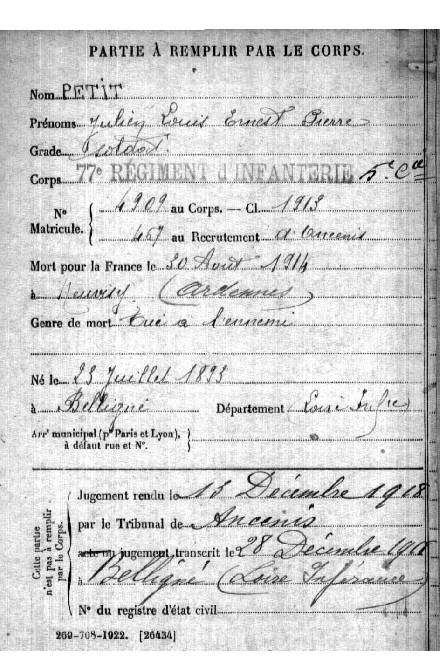 PARTIE À REMPLIR PAR LE CORPS.
Nom PETIT
Prénoms Julien Louis Ernest Pierre
Grade Soldat
Corps 77e RÉGIMENT D'INFANTERIE 5e Cie
N° Matricule. { 4909 au Corps. — Cl. 1913
467 au Recrutement d'Ancenis
Mort pour la France le 30 Août 1914
à Neuvisy (Ardennes)
Genre de mort Tué à l'ennemi
Né le 23 Juillet 1893
à Belligné Département Loire Infre
Arrt municipal (pr Paris et Lyon), à défaut rue et N°.
Cette partie n'est pas à remplir par le Corps.
Jugement rendu le 15 Décembre 1918
par le Tribunal de Ancenis
acte ou jugement transcrit le 28 Décembre
à Belligné (Loire Inférieure)
N° du registre d'état civil
269-708-1922. [26434]